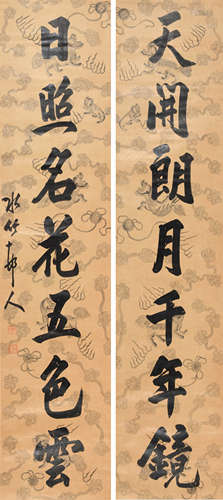 天開朗月千年鏡
日照名花五色雲
水竹邨人